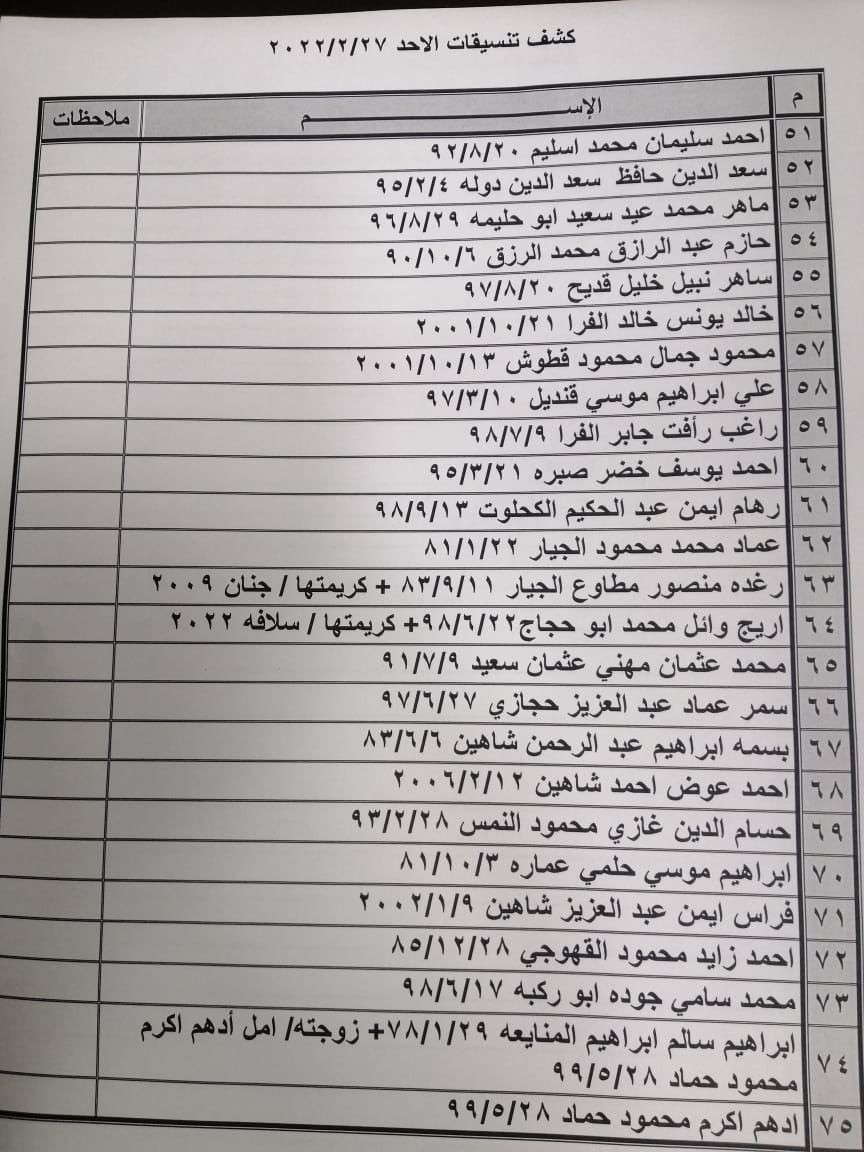 كشف تنسيقات الاحد ٢٠٢٢/٢/٢٧
م الإســــــــــم ملاحظات
٥١ احمد سليمان محمد اسليم ٩٢/٨/٢٠
٥٢ سعد الدين حافظ سعد الدين دوله ٩٥/٢/٤
٥٣ ماهر محمد عيد سعيد ابو حليمه ٩٦/٨/٢٩
٥٤ حازم عبد الرازق محمد الرزق ٩٠/١٠/٦
٥٥ ساهر نبيل خليل قديح ٩٧/٨/٢٠
٥٦ خالد يونس خالد الفرا ٢٠٠١/١٠/٢١
٥٧ محمود جمال محمود قطوش ٢٠٠١/١٠/١٣
٥٨ علي ابراهيم موسي قنديل ٩٧/٣/١٠
٥٩ راغب رأفت جابر الفرا ٩٨/٧/٩
٦٠ احمد يوسف خضر صبره ٩٥/٣/٢١
٦١ رهام ايمن عبد الحكيم الكحلوت ٩٨/٩/١٣
٦٢ عماد محمد محمود الجيار ٨١/١/٢٢
٦٣ رغده منصور مطاوع الجيار ٨٣/٩/١١ + كريمتها / جنان ٢٠٠٩
٦٤ اريج وائل محمد ابو حجاج٩٨/٦/٢٢+ كريمتها / سلافه ٢٠٢٢
٦٥ محمد عثمان مهني عثمان سعيد ٩١/٧/٩
٦٦ سمر عماد عبد العزيز حجازي ٩٧/٦/٢٧
٦٧ بسمه ابراهيم عبد الرحمن شاهين ٨٣/٦/٦
٦٨ احمد عوض احمد شاهين ٢٠٠٦/٢/١٢
٦٩ حسام الدين غازي محمود النمس ٩٣/٢/٢٨
٧٠ ابراهيم موسي حلمي عماره ٨١/١٠/٣
٧١ فراس ايمن عبد العزيز شاهين ٢٠٠٢/١/٩
٧٢ احمد زايد محمود القهوجي ٨٥/١٢/٢٨
٧٣ محمد سامي جوده ابو ركبه ٩٨/٦/١٧
٧٤ ابراهيم سالم ابراهيم المنايعه ٧٨/١/٢٩+ زوجته/ امل أدهم اكرم
محمود حماد ٩٩/٥/٢٨
٧٥ ادهم اكرم محمود حماد ٩٩/٥/٢٨